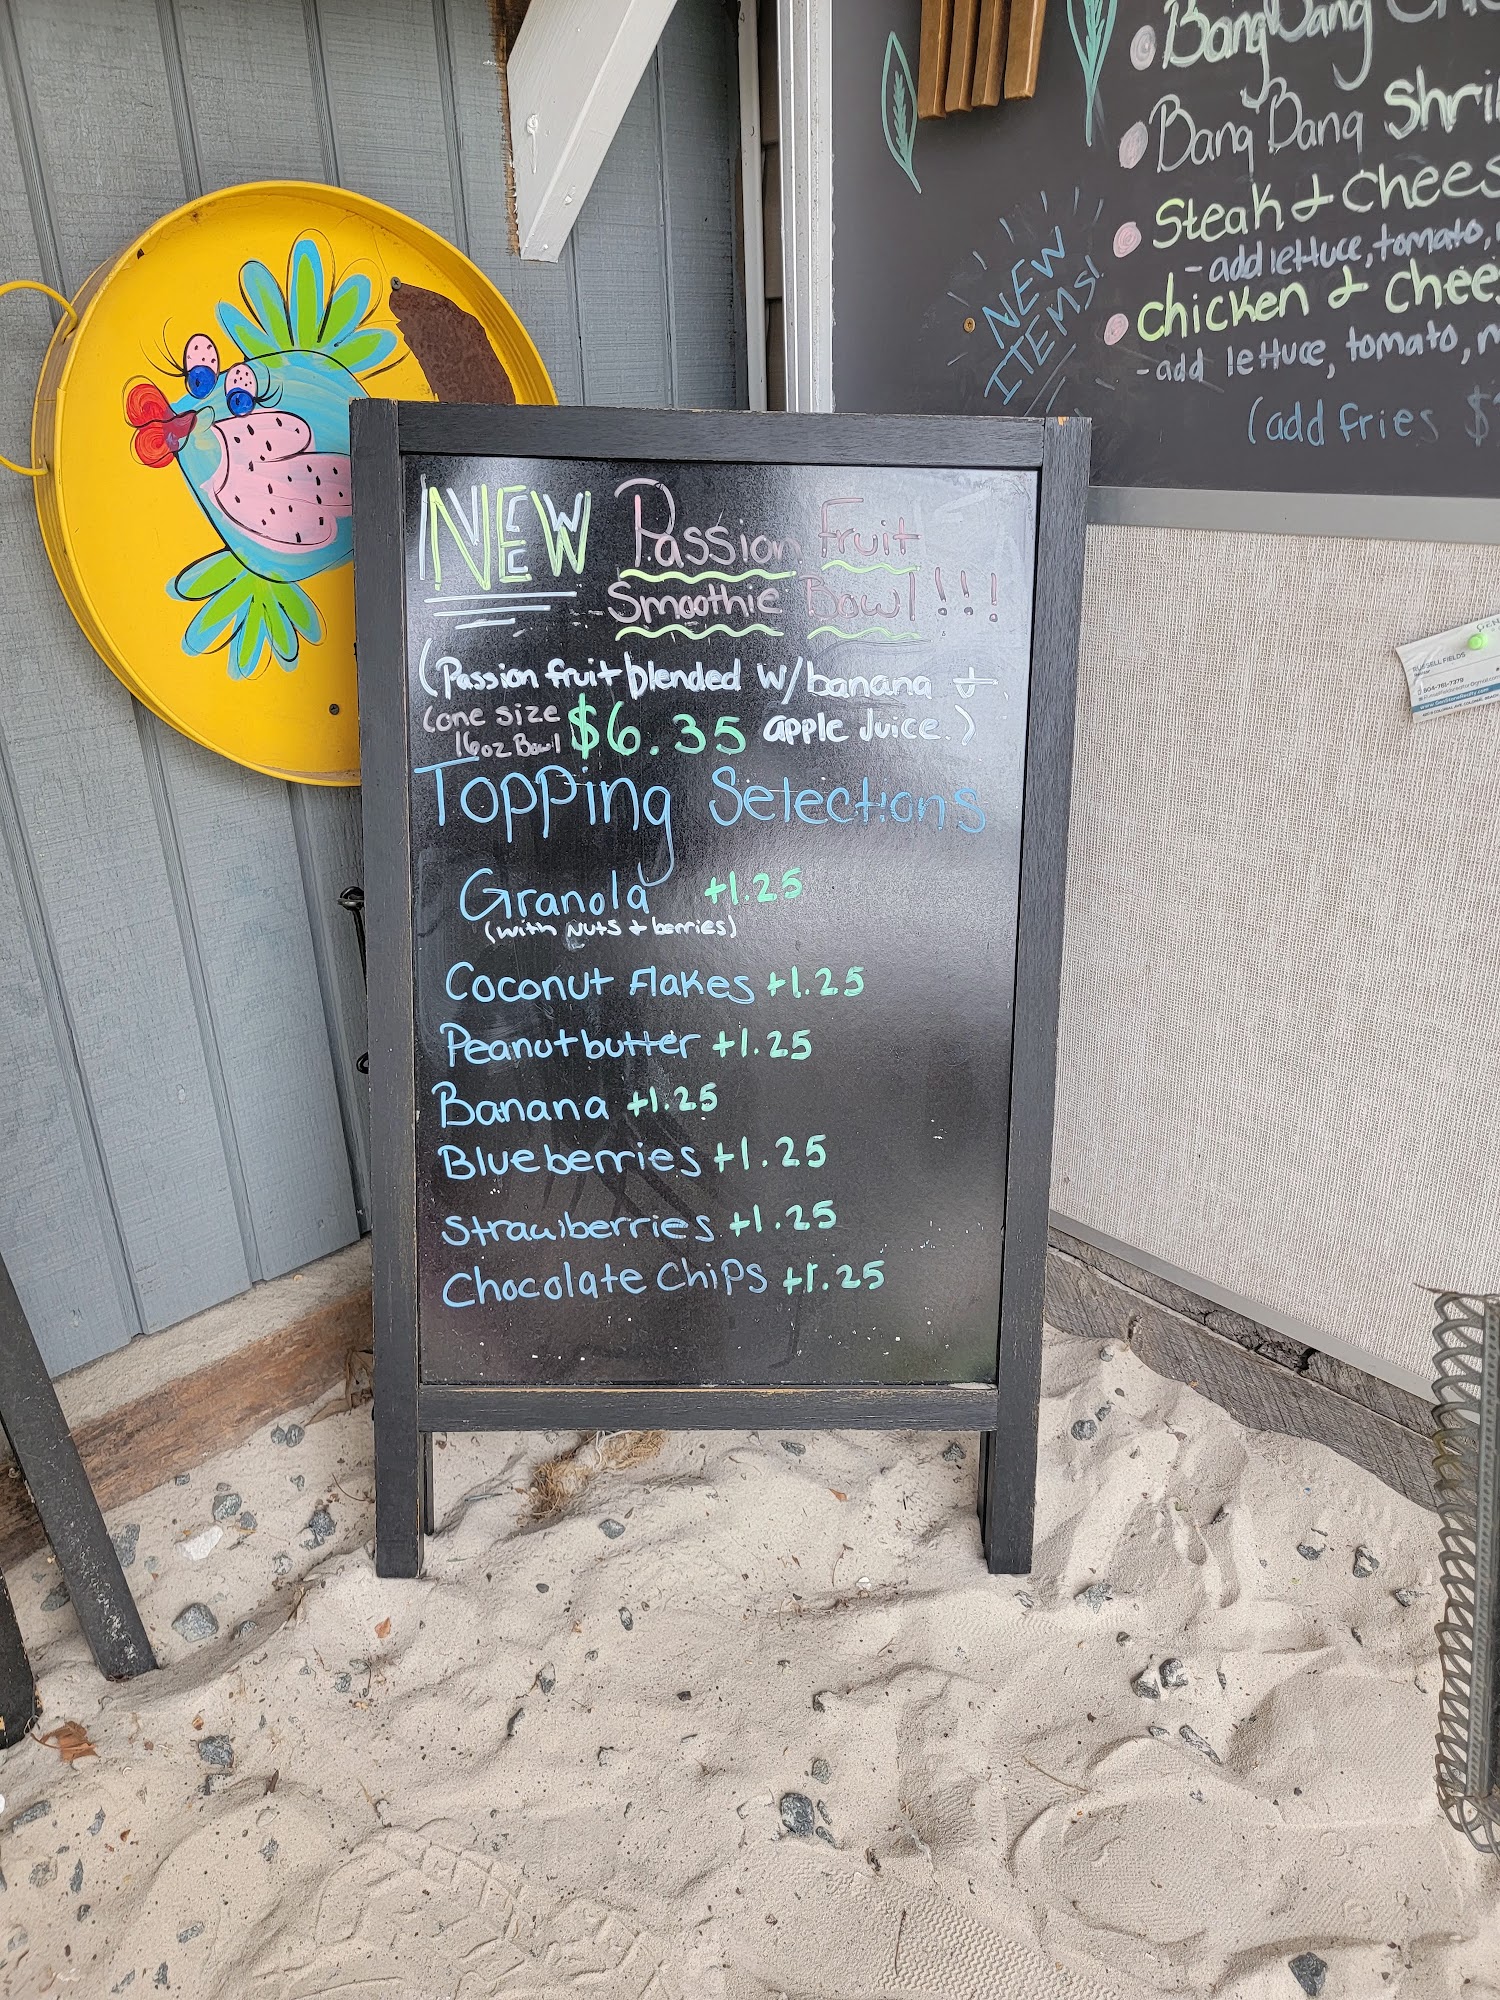 BangBang
Bang Bang Shri
Steak & Chees
- add lettuce, tomato,
Chicken & Chee
- add lettuce, tomato,
(add fries $
NEW
ITEMS!
NEW Passion Fruit
Smoothie Bowl!!!
(Passion fruit blended w/banana &
apple juice.)
(one size
16oz Bowl $6.35
Topping Selections
Granola +1.25
(with Nuts + berries)
Coconut Flakes +1.25
Peanut butter +1.25
Banana +1.25
Blueberries +1.25
Strawberries +1.25
Chocolate Chips +1.25
RUSSELL FIELDS
804-761-7379